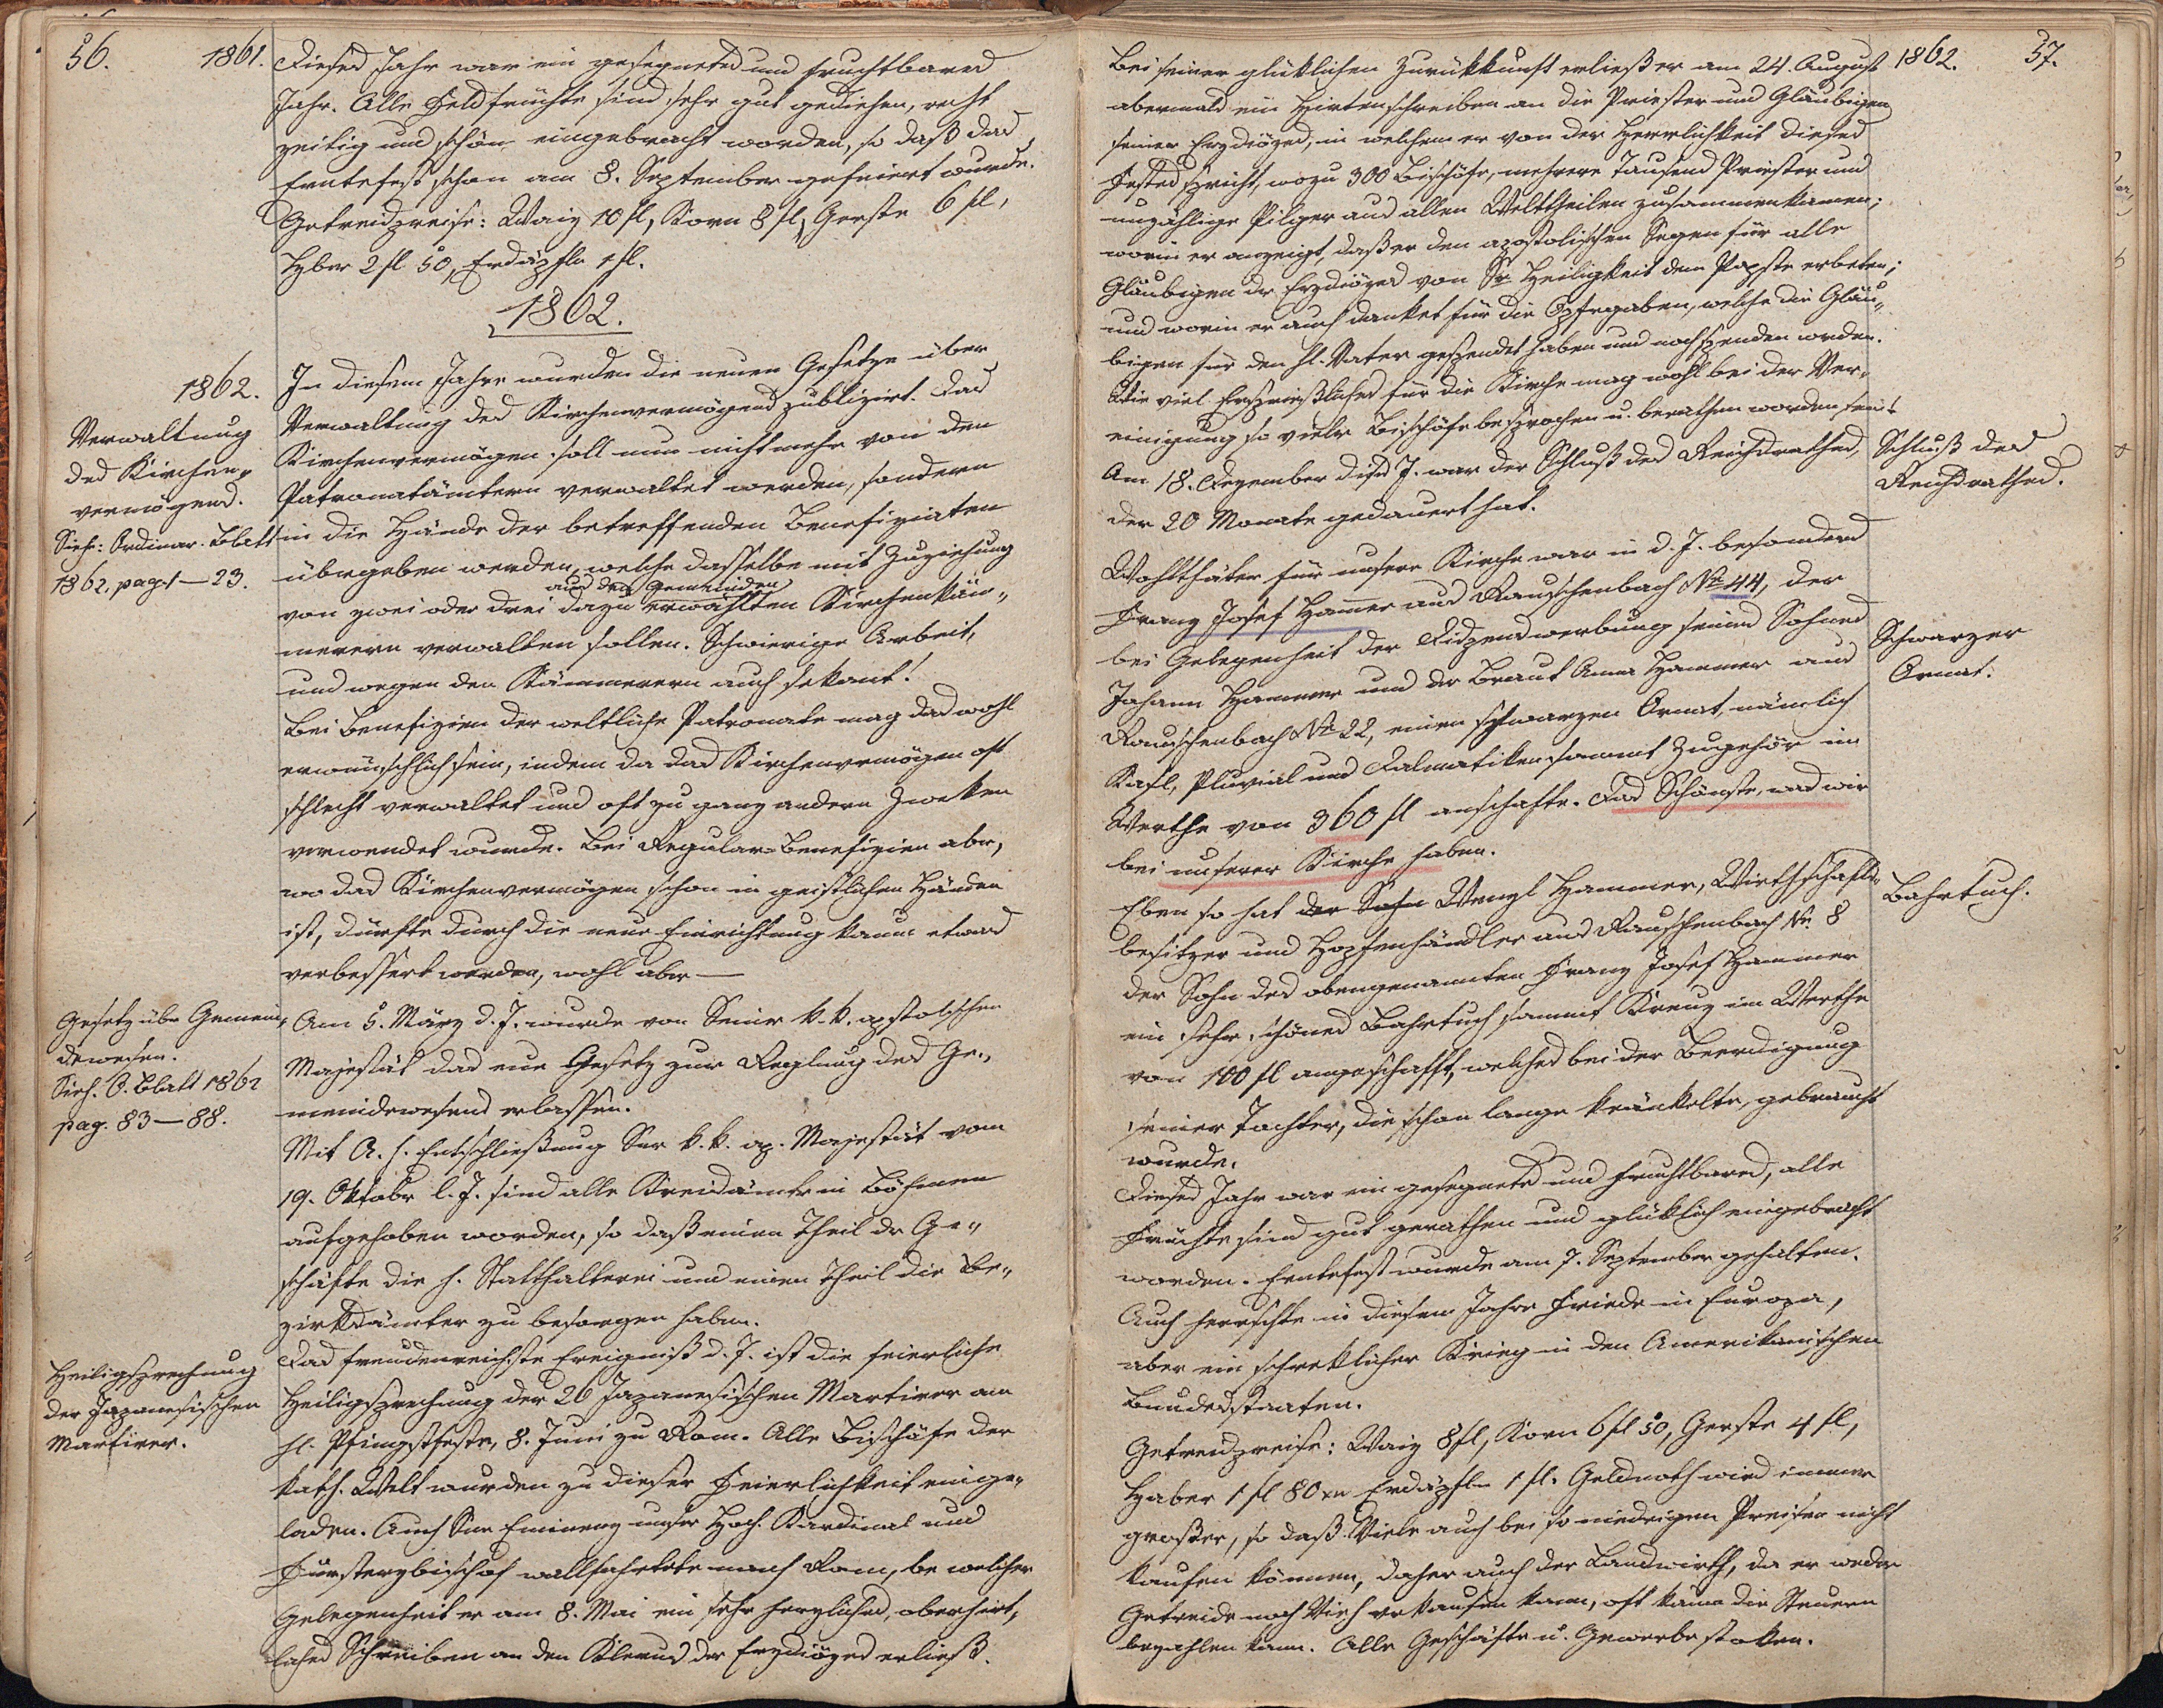 56.
1861.
Dieses Jahr war ein gesegnetes und fruchtbares
Jahr. Alle Feldfrüchte sind sehr gut gediehen, recht
zeitig und schön eingebracht worden, so daß das
Erntefest schon am 8. September gefeiert wurde.
Getreidpreise: Waiz 10 fl, Korn 8 fl, Gerste 6 fl,
Hber 2 fl 50, Erdäpfln 1 fl.
1862.
1862.
Verwaltung
des Kirchen„
vermögens.
Sieh: Ordinar. Blatt
1862, pag. 1–23.
In diesem Jahre wurden die neuen Gesetze über
Verwaltung des Kirchenvermögens publizirt. Das
Kirchenvermögen soll nun nicht mehr von den
Patronatämtern verwaltet werden, sondern
in die Hände der betreffenden Benefiziaten
übergeben werden, welche dasselbe mit Zuziehung
aus den Gemeinden
von zwei oder drei dazu erwählten Kirchenkäm„
merern verwalten sollen. Schwierige Arbeit,
und wegen den Kämmerern auch sekant!
Bei Benefizien der weltliche Patronate mag das wohl
erwünschlich sein, indem da das Kirchenvermögen oft
schlecht verwaltet und oft zu ganz andern Zweken
verwendet wurde. Bei Regular-Benefizien aber,
wo das Kirchenvermögen schon in geistlichen Händen
ist, dürfte durch die neue Einrichtung kaum etwas
verbessert werden, wohl aber —
Gesetz über Gemein„
dewesen.
Sieh. O. Blatt 1862
pag. 83–88.
Am 5. März d. J. wurde von Seiner k. k. apstolischen
Majestät das neue Gesetz zur Reglung des Ge„
meindewesens erlassen.
Mit A. h. Entschließung Sr k. k. ap. Majestät vom
19. Oktober l. J. sind alle Kreisämter in Böhmen
aufgehoben worden, so daß einen Theil der Ge„
schäfte die h. Statthalterei und einen Theil die Be„
zirksämter zu besorgen haben.
Heiligsprechung
der Japanesischen
Martirer.
Das freudenreichste Ereigniß d. J. ist die feierliche
Heiligsprechung der 26 Japanesischen Martirer am
hl. Pfingstfeste, 8. Juni zu Rom. Alle Bischöfe der
kath. Welt wurden zu dieser Feierlichkeit einge„
laden. Auch Sr Eminenz unser Hoch. Kardinal und
Fürsterzbischof wallfahrtete nach Rom, be welcher
Gelegenheit er am 8. Mai ein sehr herzliches, oberhirt„
liches Schreiben an den Klerus der Erzdiözes erließ.
1862.
57.
Bei seiner glüklichen Zurükkunft erließ er am 24. August
abermals ein Hirtenschreiben an die Priester und Gläubigen
seiner Erzdiözes, in welchem er von der Herrlichkeit dieses
Festes spricht, wozu 300 Bischöfe, mehrere Tausend Priester und
unzählige Pilger aus allen Welttheilen zusammenkamen;
worin er anzeigt, daß er den apostolischen Segen für alle
Gläubigen der Erzdiözes von Sr Heiligkeit dem Papste erbeten;
und worin er auch danket für die Opfergaben, welche die Gläu„
bigen für den hl. Vater gespendet haben und noch spenden werden.
Wie viel Ersprießliches für die Kirche mag wohl bei der Ver„
einigung so vieler Bischöfe besprochen u. berathen worden sein!
Schluß des
Reichsrathes.
Am 18. Dezember dies J. war der Schluß des Reichsrathes,
der 20 Monate gedauert hat.
Wohlthäter für unsere Kirche war in d. J. besonders
Franz Josef Hamer aus Rauschenbach No 44, der
bei Gelegenheit der Dispenswerbung seines Sohnes
Schwarzer
Ornat.
Johann Hammer und der Braut Anna Hammer aus
Rauschenbach No 22, einen schwarzen Ornat, nämlich
Kasl, Pluvial und Dalmatiken sammt Zugehör im
Werthe von 360 fl anschafte. Das Schönste, was wir
bei unserer Kirche haben.
Bahrtuch.
Eben so hat der Sohn Wenzl Hammer, Wirthschafts„
besitzer und Hopfenhändler aus Rauschenbach No. 8
der Sohn des obengenannten Franz Josef Hammer
ein sehr schönes Bahrtuch sammt Kreuz im Werthe
von 100 fl angeschafft, welches bei der Beerdigung
seiner Tochter, die schon lange kränkelte, gebraucht
wurde.
Dieses Jahr war ein gesegnetes und fruchtbares, alle
Früchte sind gut gerathen und glüklich eingebracht
worden. Erntefest wurde am 7. September gehalten.
Auch herrschte in diesem Jahre Friede in Europa,
aber ein schreklicher Krieg in den Amerikanischen
Bundesstaaten.
Getreidpreise: Waiz 8 fl, Korn 6 fl 50, Gerste 4 fl,
Haber 1 fl 80 xr Erdäpfln 1 fl. Geldnoth wird immer
großer, so daß Viele auch bei so niedrigen Preisen nicht
kaufen können, daher auch der Landwirth, da er weder
Getreide noch Vieh verkaufen kann, oft kaum die Steuern
bezahlen kann. Alle Geschäfte u. Gewerbe stoken.